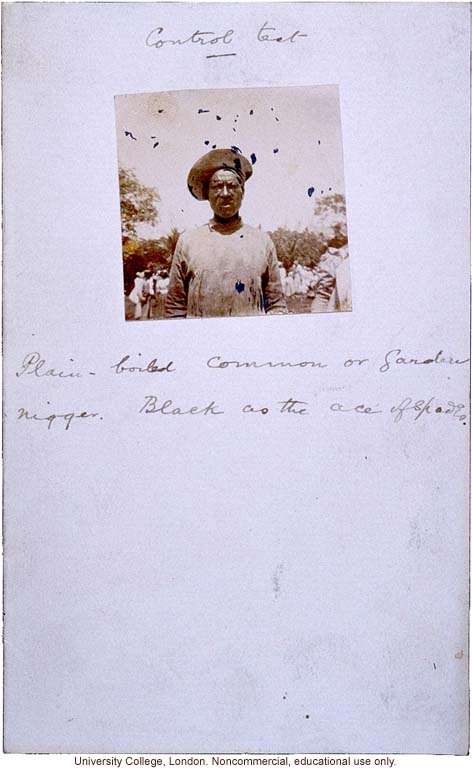 Control test
Plain-boiled common or garden
nigger. Black as the ace of Spades.
University College, London. Noncommercial, educational use only.